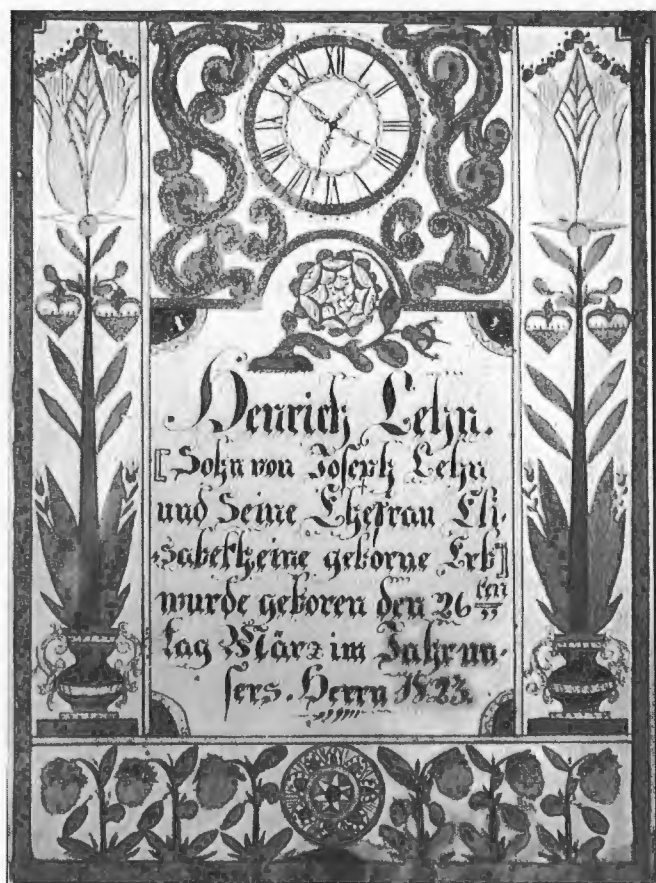 Henrich Lehn.
[Sohn von Joseph Lehn
und Seine Ehefrau Eli-
sabeth, eine geborne Erb]
wurde geboren den 26ten
tag März im Jahr un-
sers. Herrn 1823.